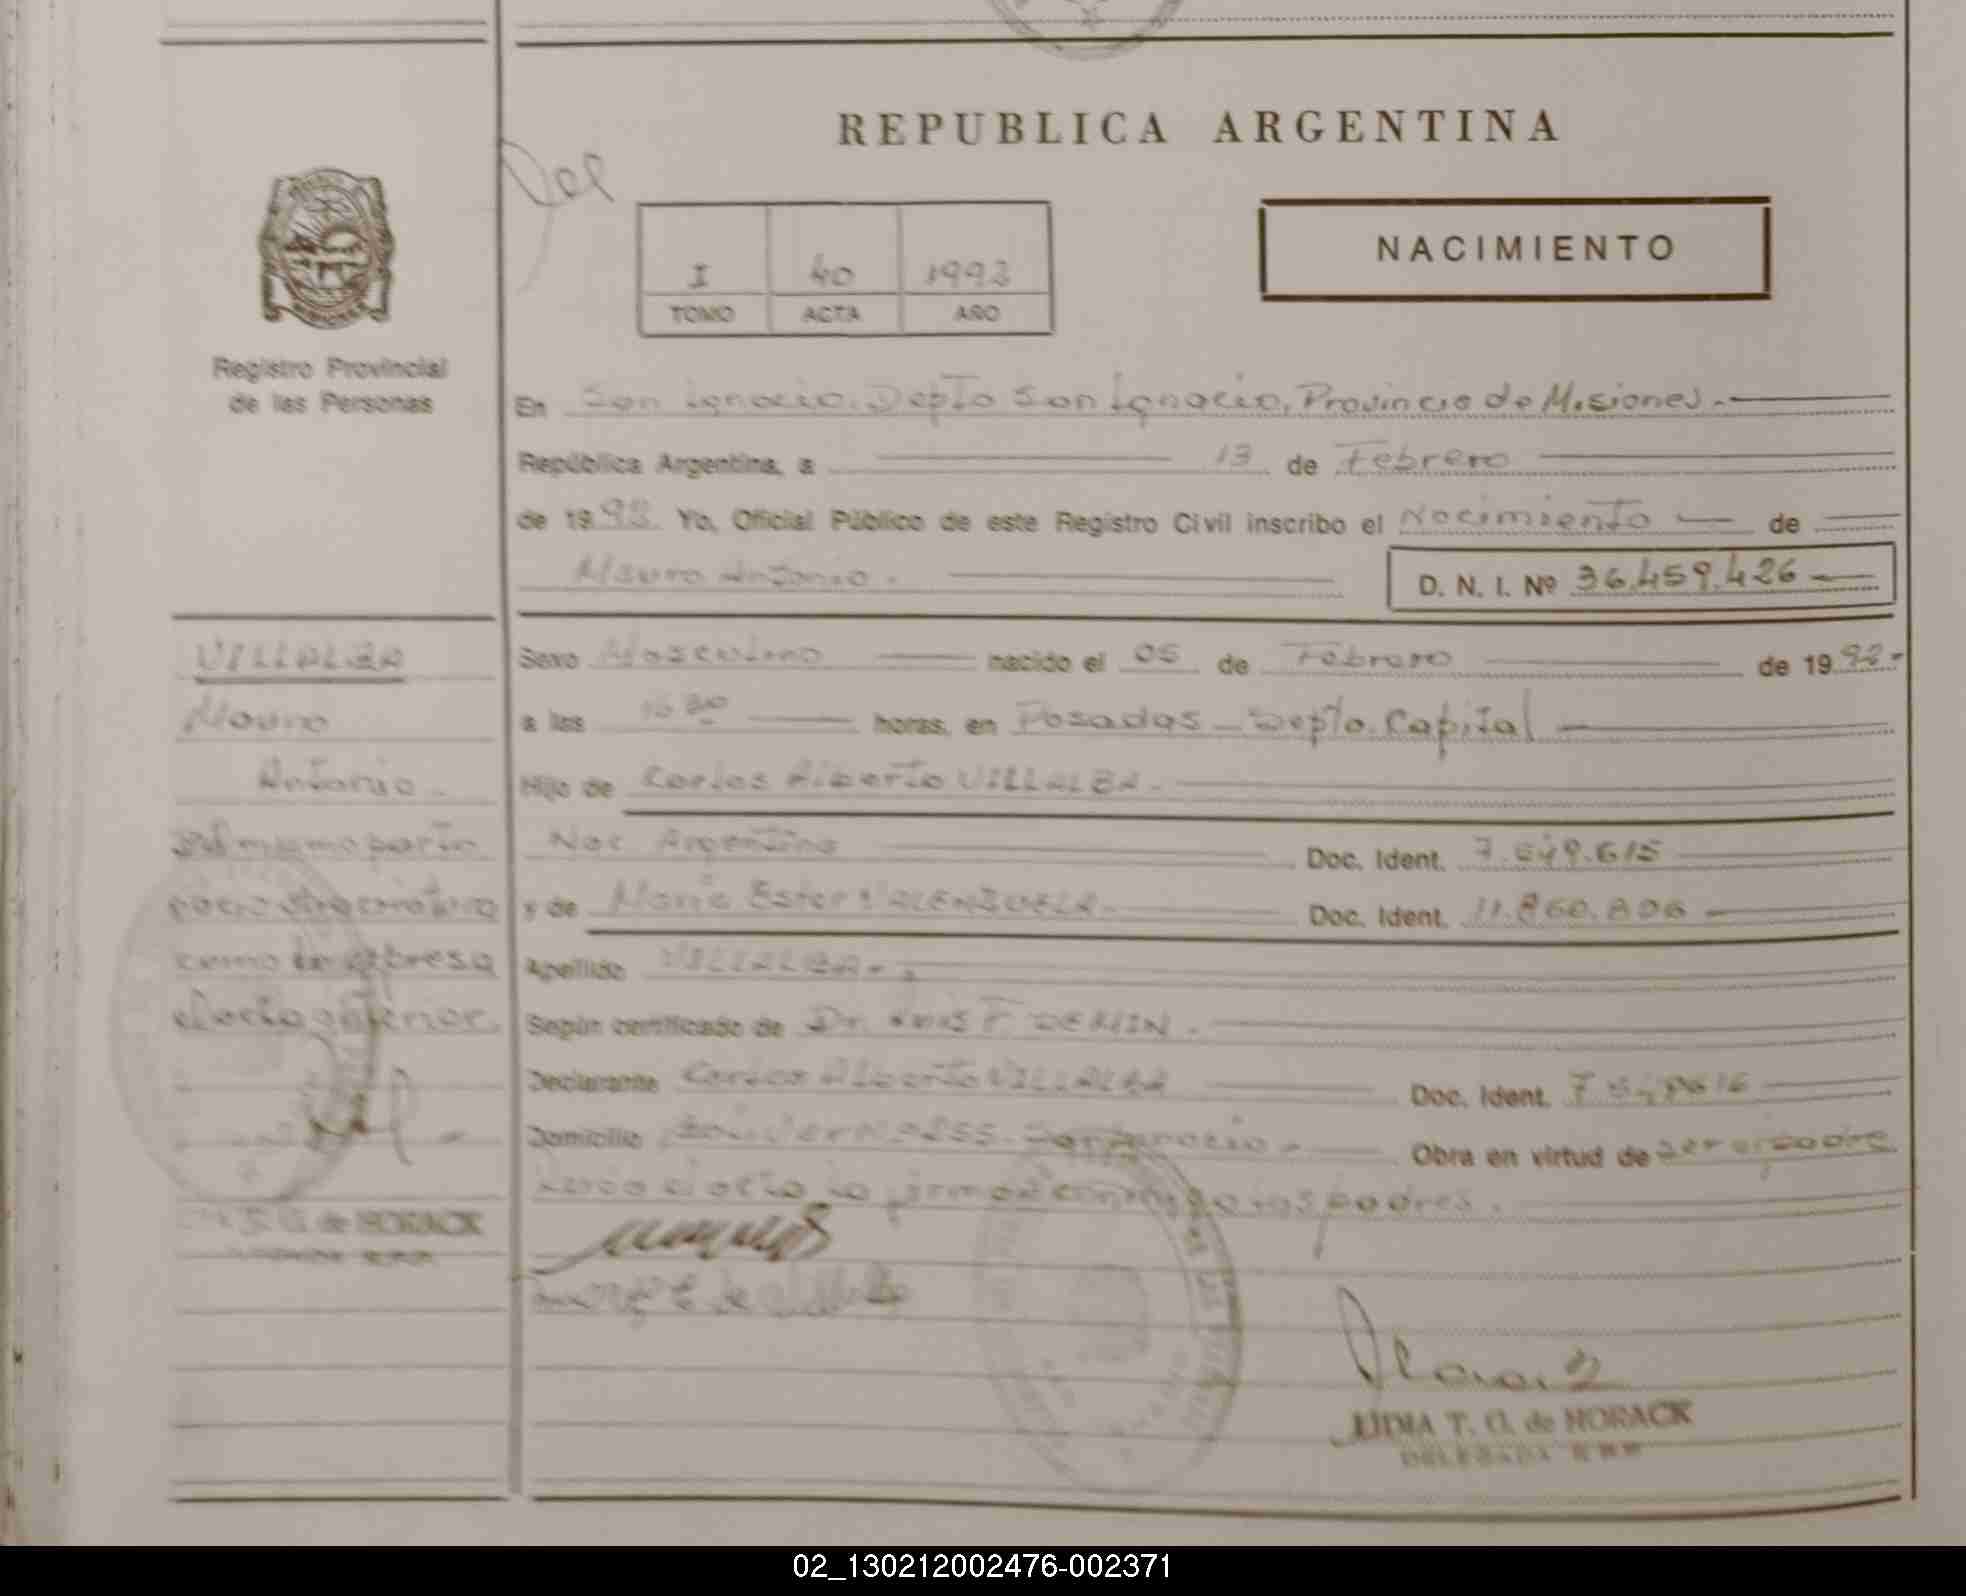 REPUBLICA ARGENTINA
NACIMIENTO
I 40 1992
TOMO ACTA AÑO
Registro Provincial
de las Personas
En San Ignacio, Depto San Ignacio, Provincia de Misiones.-
República Argentina, a 13 de Febrero
de 1992 Yo, Oficial Público de este Registro Civil inscribo el Nacimiento de
Mauro Antonio.
D. N. I. Nº 36.459.426
VILLALBA
Mauro
Antonio.-
Sexo Masculino nacido el 05 de Febrero de 1992.-
a las 16 30 horas, en Posadas - Depto. Capital
Hijo de Carlos Alberto VILLALBA.-
Nac Argentina Doc. Ident. 7.649.615
y de María Ester VALENZUELA.- Doc. Ident. 11.860.806
como lo expresa
el acta anterior.
Apellido VILLALBA-.
Según certificado de Dr. Luis F DEMIN.
Declarante Carlos Alberto VILLALBA Doc. Ident.
Domicilio Nº 255. San Ignacio.- Obra en virtud de ser el padre
el acta la firman conmigo los padres.
G. de HORACK
LIDIA T. G. de HORACK
DELEGADA R.R.P.
02_130212002476-002371